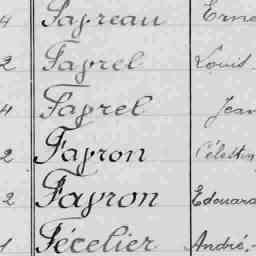 4 Fayreau Erne
2 Fayrel Louis
4 Fayrel Jean
2 Fayron Célestin
2 Fayron Edouard
1 Fécelier André,-